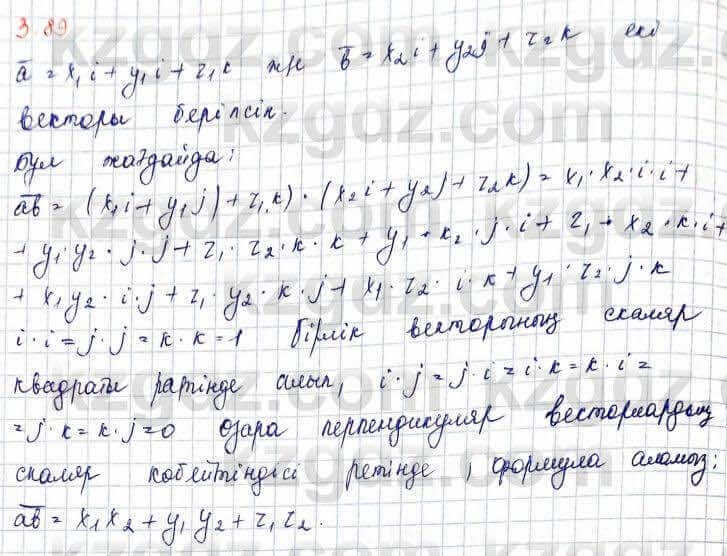 3.89
ā = x₁i + y₁i + z₁k жне b̄ = x₂i + y₂j + z₂k екі
векторы берілсін.
Бұл жағдайда:
a̅b̅ = (x₁i + y₁j) + z₁k) · (x₂i + y₂j + z₂k) = x₁ · x₂ · i · i +
+ y₁ · y₂ · j · j + z₁ · z₂ · k · k + y₁ · x₂ · j · i + z₁ + x₂ · k · i +
+ x₁y₂ · i · j + z₁ · y₂ · k · j + x₁ · z₂ · i · k + y₁ · z₂ · j · k
i · i = j · j = k · k = 1 бірлік векторының скаляр
квадраты ретінде алып, i · j = j · i = i · k = k · i =
= j · k = k · j = 0 өзара перпендикуляр векторлардың
скаляр көбейтіндісі ретінде, формула аламыз:
a̅b̅ = x₁x₂ + y₁y₂ + z₁z₂.
kzgdz.com